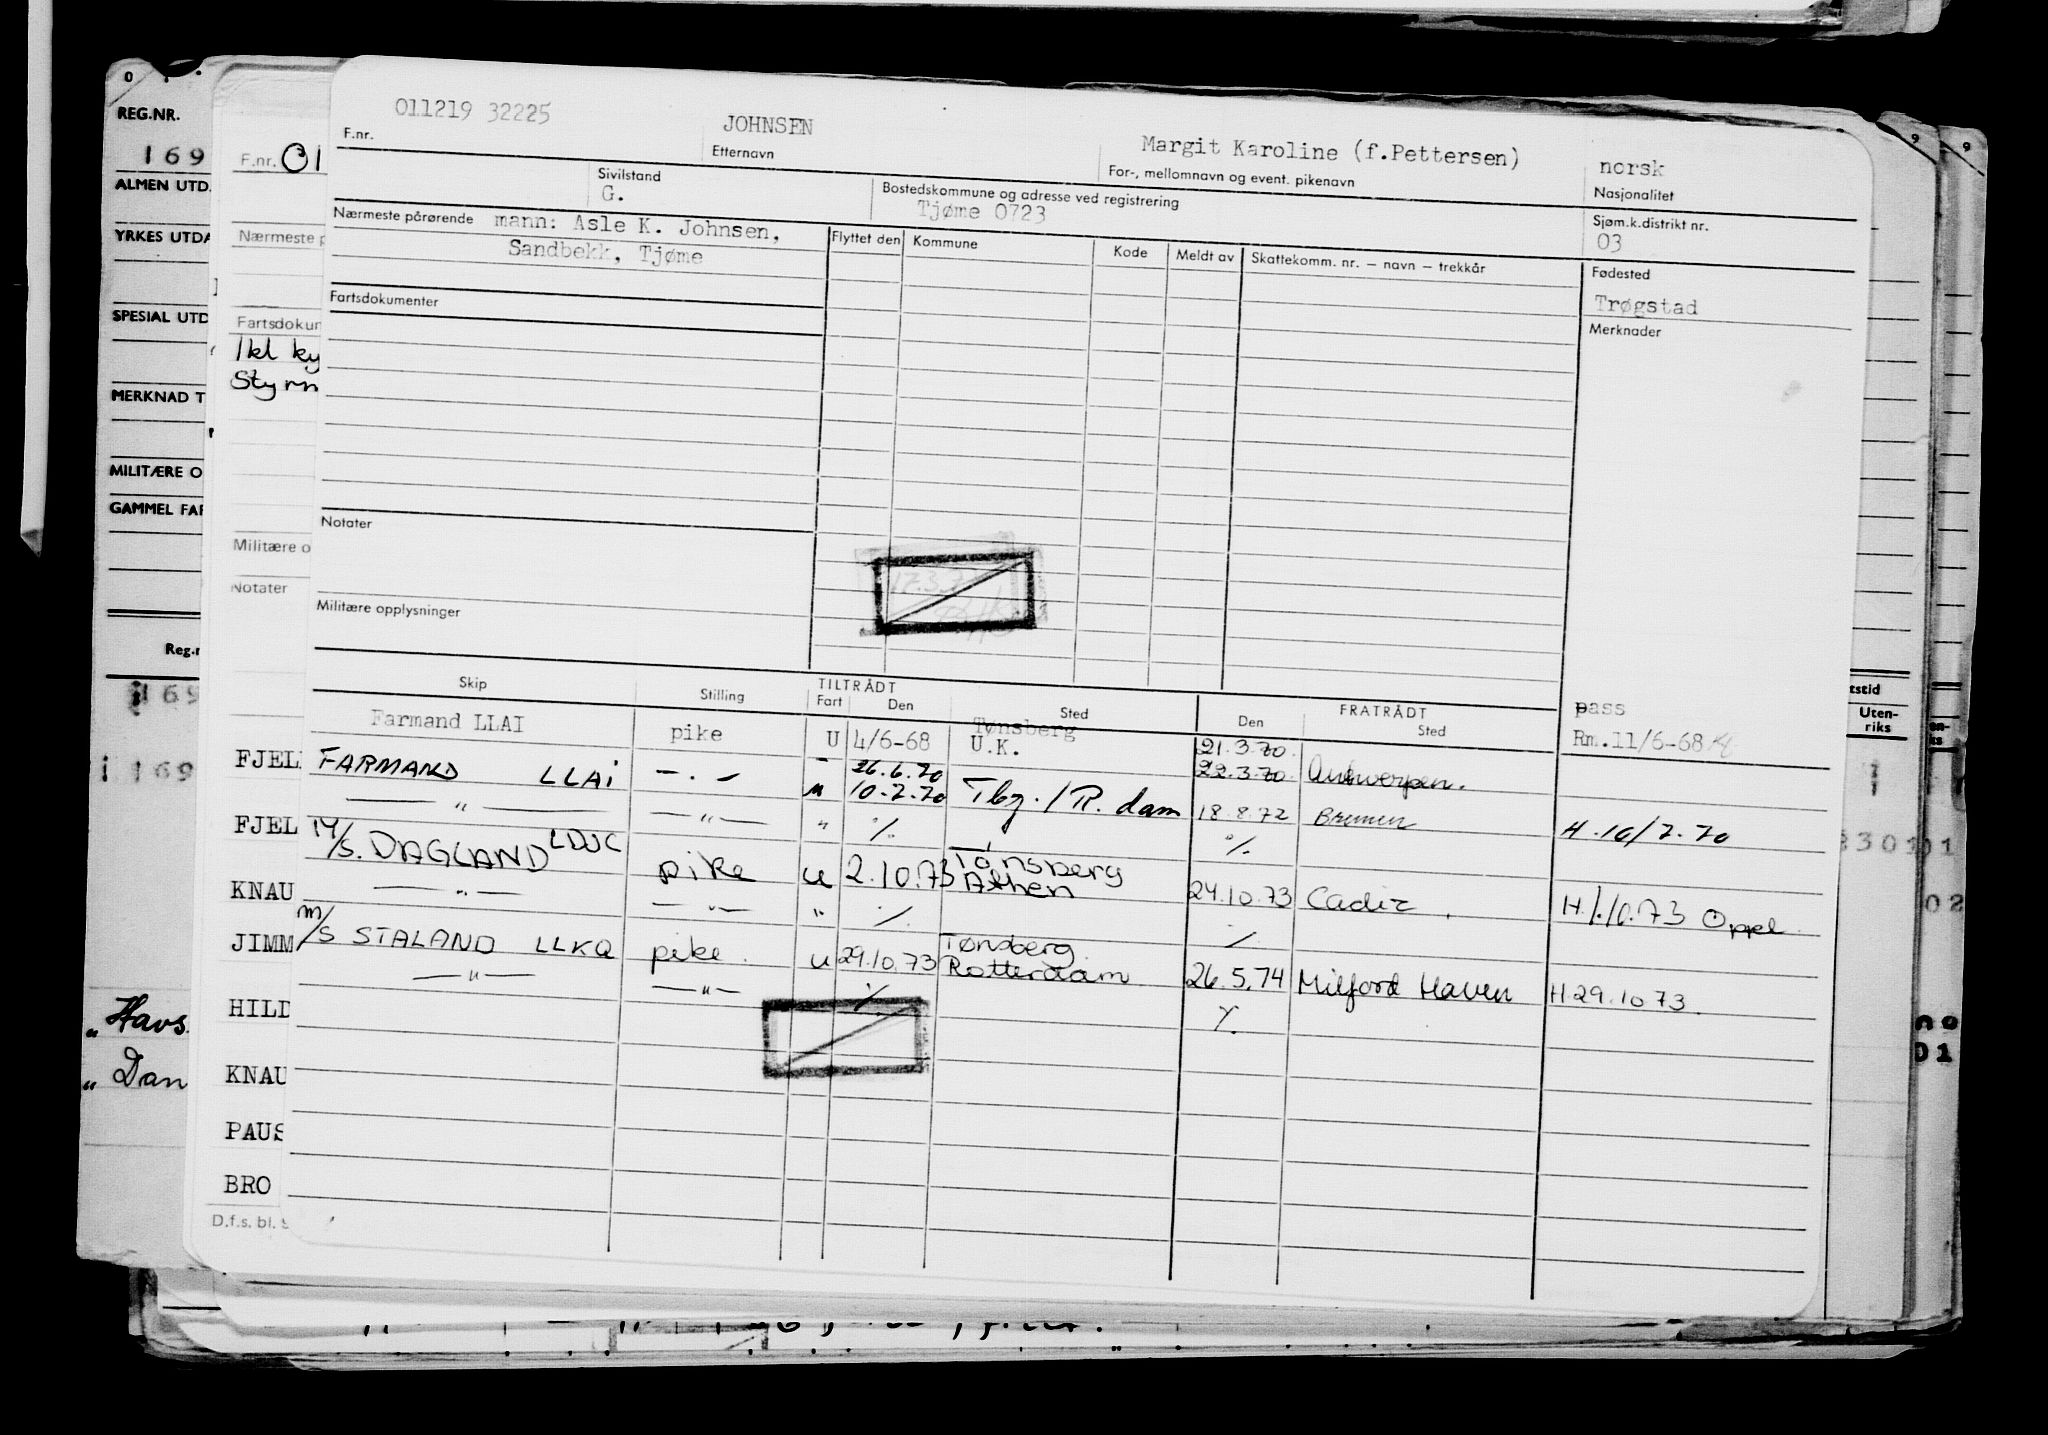 REG.NR.
169
ALMEN UTD.
YRKES UTDA
SPESIAL UTD
MERKNAD T
MILITÆRE O
GAMMEL FAR
Reg.n
169
169
"Havs
"Dan
F.nr. 01
Nærmeste p
Fartsdokum
1kl ky
Styrm
Militære o
Notater
FJEL
FJEL
KNAU
JIMM
HILD
KNAU
PAUS
BRO
D.f.s. bl.
011219 32225 JOHNSEN Margit Karoline (f.Pettersen) norsk
F.nr. Etternavn For-, mellomnavn og event. pikenavn Nasjonalitet
Sivilstand Bostedskommune og adresse ved registrering Sjøm.k.distrikt nr.
G. Tjøme 0723 03
Nærmeste pårørende mann: Asle K. Johnsen,
Sandbekk, Tjøme
Flyttet den Kommune Kode Meldt av Skattekomm. nr. – navn – trekkår Fødested
Trøgstad
Fartsdokumenter
Merknader
Notater
17.3.7
Militære opplysninger
Skip Stilling TILTRÅDT FRATRÅDT
Fart Den Sted Den Sted
Farmand LLAI pike U 4/6-68 Tønsberg U.K. 21.3.70 pass Rm.11/6-68
FARMAND LLAI — . — – 26.6.70 22.3.70 Antwerpen.
— " — — " — " 10.7.70 Tbg. / R. dam 18.8.72 Bremen H.10/7.70
" ./. ./.
M/S. DAGLAND LDJC pike u 2.10.73 Tønsberg Athen 24.10.73 Cadiz H 1.10.73 Oppel.
— " — — " — " ./. ./.
M/S STALAND LLKQ pike u 29.10.73 Tønsberg Rotterdam 26.5.74 Milford Haven H 29.10 73.
— " — — " — ./. ./.
tstid
Uten-
riks
01
02
01